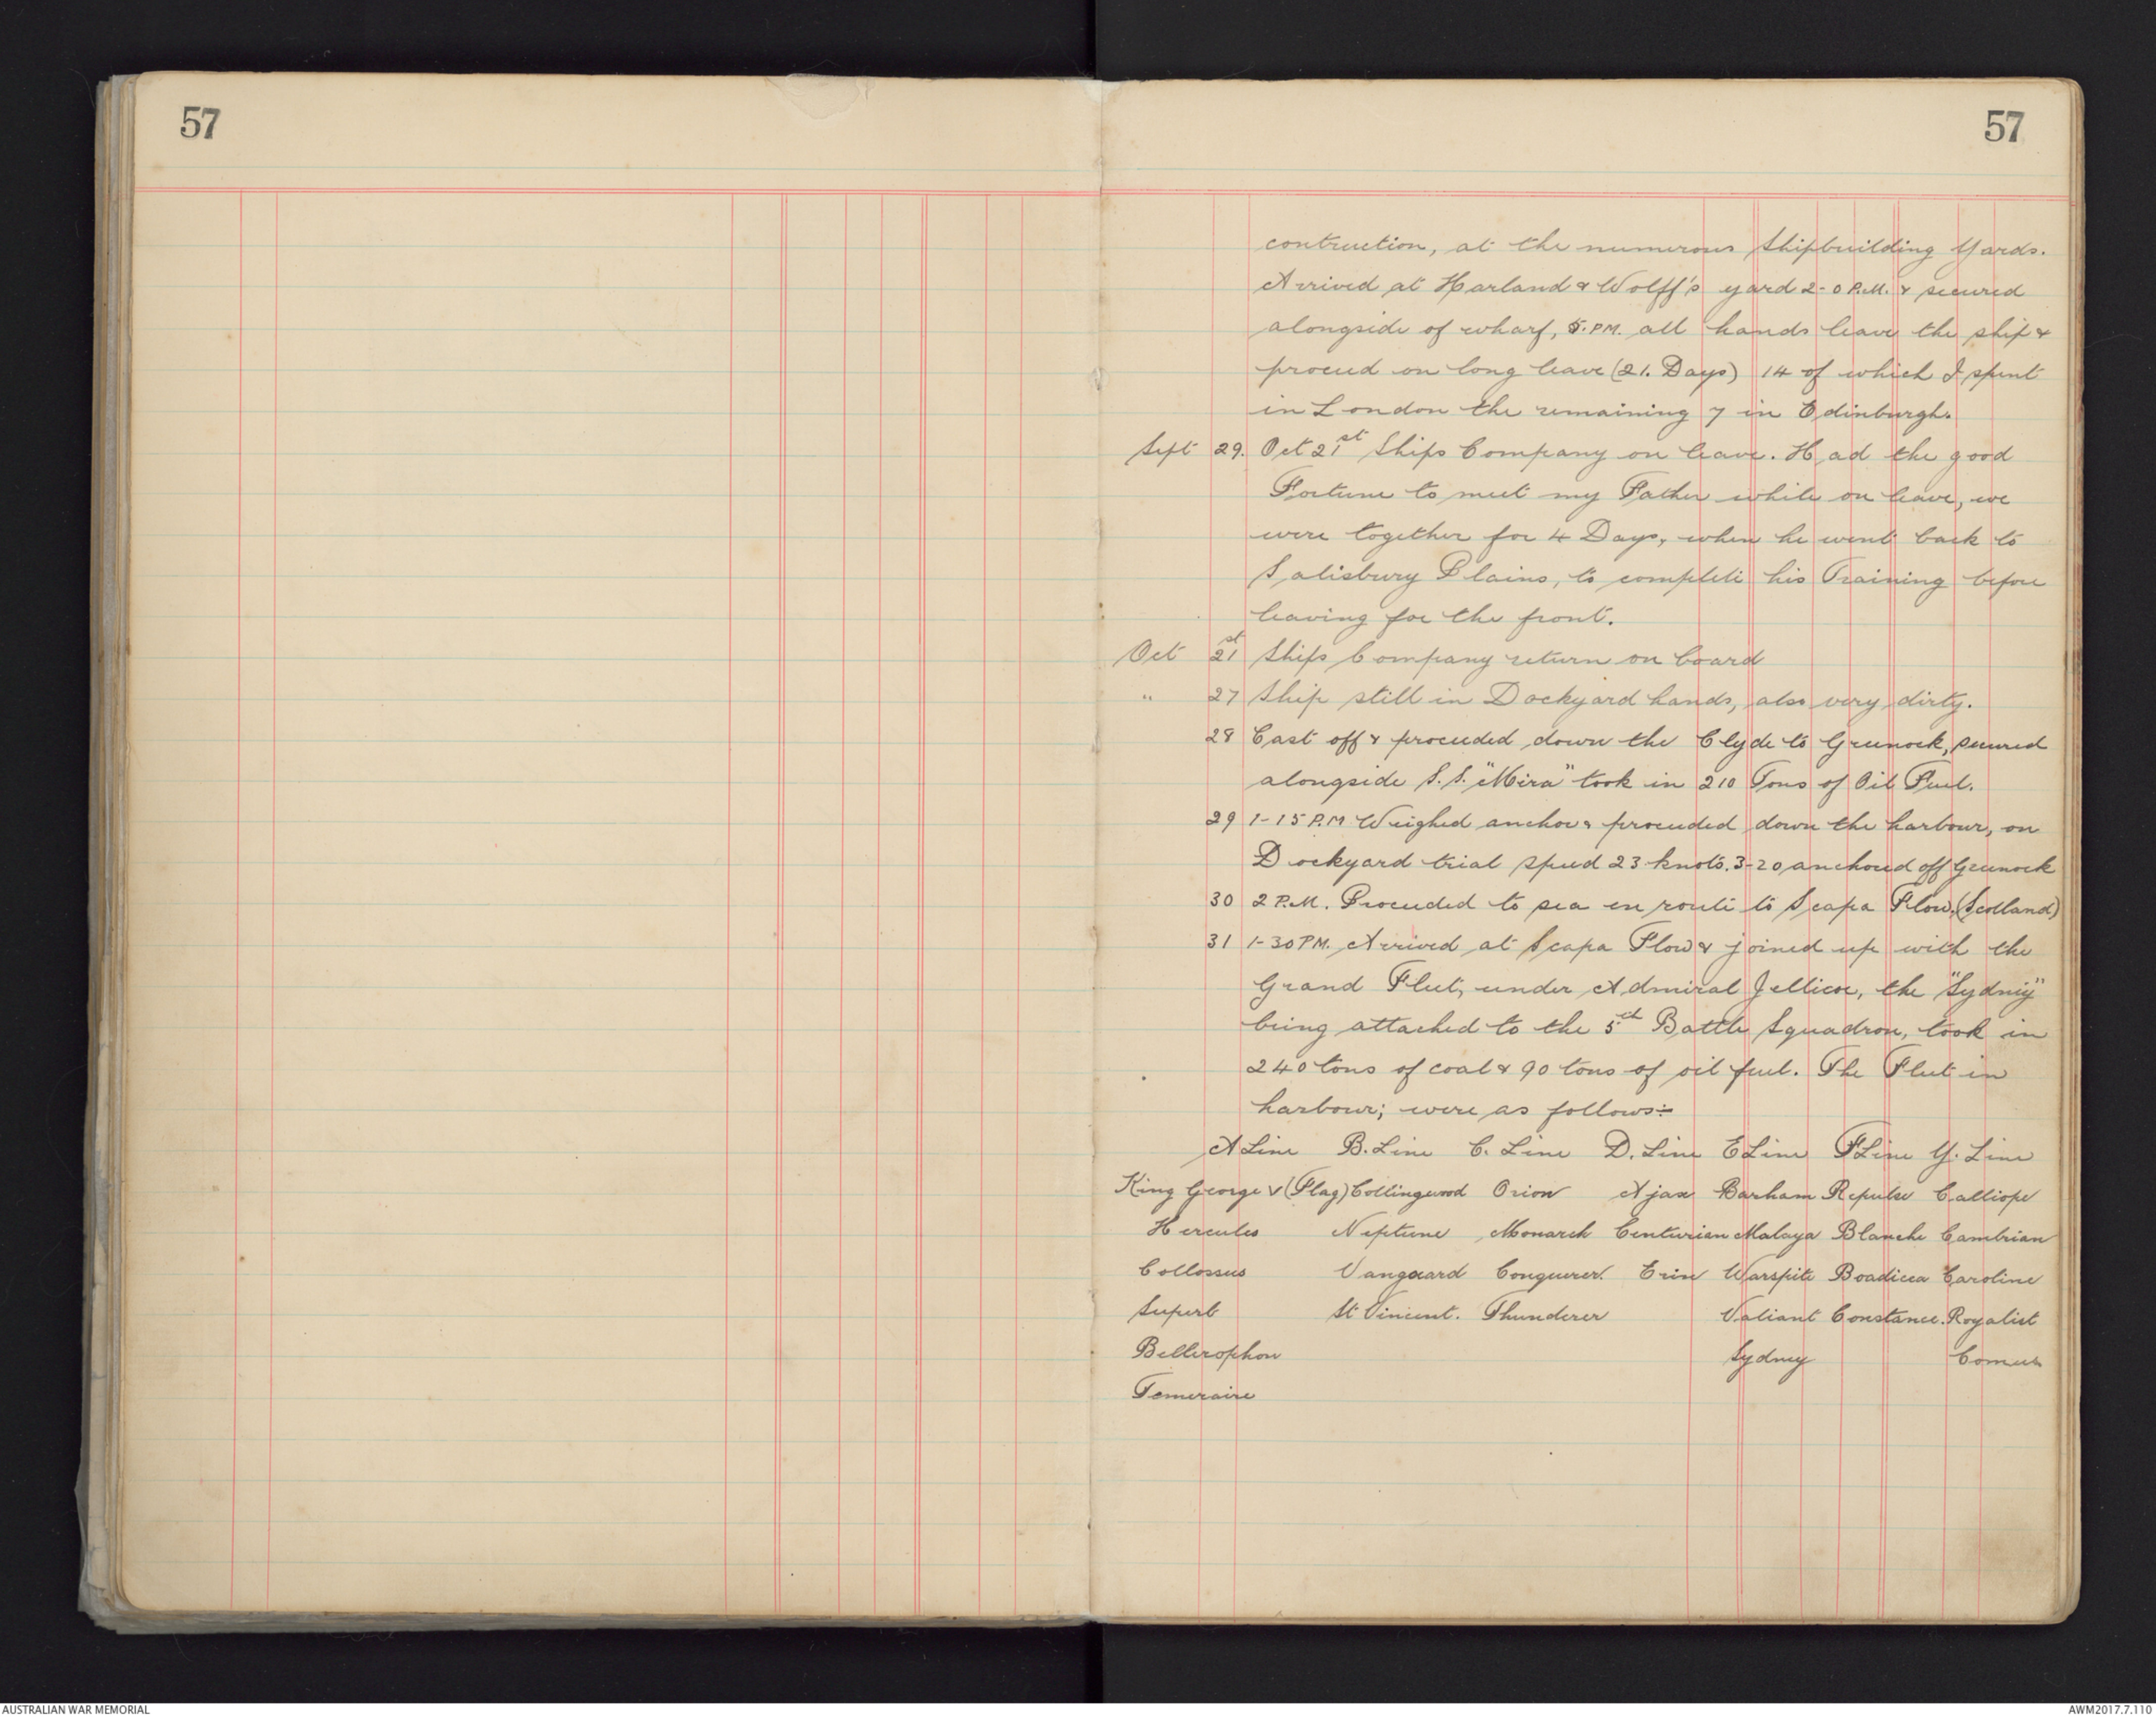 57
57
contruction, at the numerous Shipbuilding Yards.
Arrived at Harland & Wolff's yard 2-0 P.M. & secured
alongside of wharf, 5. PM. all hands leave the ship &
proceed on long leave (21. Days) 14 of which I spent
in London the remaining 7 in Edinburgh.
Sept 29. Oct 21st Ships Company on leave. Had the good
Fortune to meet my Father while on leave, we
were together for 4 Days, when he went back to
Salisbury Plains, to complete his Training before
leaving for the front.
Oct 21st Ships Company return on board
" 27 Ship still in Dockyard hands, also very dirty.
28 Cast off & proceeded down the Clyde to Greenock, secured
alongside S.S. "Mira" took in 210 Tons of Oil Fuel.
29 1-15 P.M Weighed anchor & proceeded down the harbour, on
Dockyard trial speed 23 knots. 3-20 anchored off Greenock
30 2 P.M. Proceeded to sea en route to Scapa Flow, (Scotland)
31 1-30 PM. Arrived at Scapa Flow & joined up with the
Grand Fleet, under Admiral Jellicoe, the "Sydney"
being attached to the 5th Battle Squadron, took in
240 tons of coal & 90 tons of oil fuel. The Fleet in
harbour; were as follows:-
A Line B. Line C. Line D. Line E Line F Line Y. Line
King George V (Flag) Collingwood Orion Ajax Barham Repulse Calliope
Hercules Neptune Monarch Centurian Malaya Blanche Cambrian
Collossus Vanguard Conquerer. Erin Warspite Boadicea Caroline
Superb St Vincent. Thunderer Valiant Constance. Royalist
Bellerophon Sydney Comus
Temeraire
AUSTRALIAN WAR MEMORIAL
AWM2017.7.110